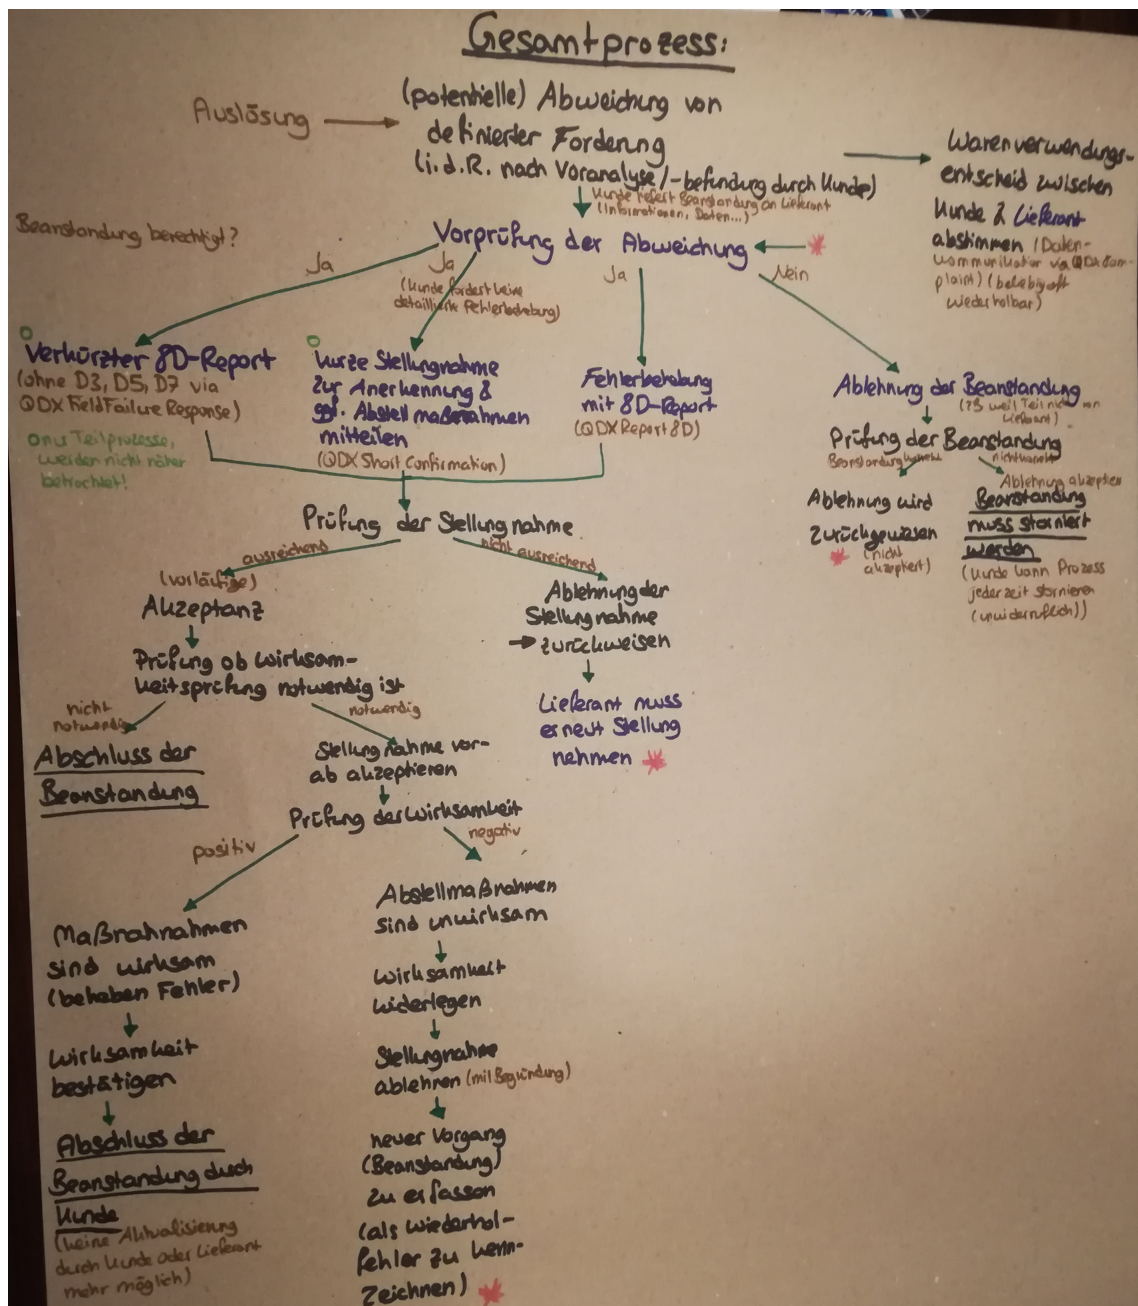 Gesamtprozess:
Auslösung
(potentielle) Abweichung von
definierter Forderung
(i.d.R. nach Voranalyse/-befundung durch Kunde)
Kunde liefert Beanstandung an Lieferant
(Informationen, Daten...)
Warenverwendungs-
entscheid zwischen
Kunde & Lieferant
abstimmen (Daten-
kommunikation via QDX Com-
plaint) (beliebig oft
wiederholbar)
Beanstandung berechtigt?
Vorprüfung der Abweichung
Ja
Ja
(Kunde fordert keine
detaillierte Fehlerbehebung)
Ja
Nein
Verkürzter 8D-Report
(ohne D3, D5, D7 via
QDX FieldFailure Response)
o nur Teilprozesse,
werden nicht näher
betrachtet!
kurze Stellungnahme
zur Anerkennung &
ggf. Abstellmaßnahmen
mitteilen
(QDX Short Confirmation)
Fehlerbehebung
mit 8D-Report
(QDX Report 8D)
Ablehnung der Beanstandung
(z.B. weil Teil nicht von
Lieferant)
Prüfung der Beanstandung
Beanstandung korrekt
nicht korrekt
Ablehnung wird
zurückgewiesen
(nicht
akzeptiert)
Ablehnung akzeptieren
Beanstandung
muss storniert
werden
(Kunde kann Prozess
jederzeit stornieren
(unwiderruflich))
Prüfung der Stellungnahme
ausreichend
nicht ausreichend
(vorläufige)
Akzeptanz
Ablehnung der
Stellungnahme
zurückweisen
Prüfung ob Wirksam-
keitsprüfung notwendig ist
Lieferant muss
erneut Stellung
nehmen
nicht
notwendig
notwendig
Abschluss der
Beanstandung
Stellungnahme vor-
ab akzeptieren
Prüfung der Wirksamkeit
positiv
negativ
Maßnahnahmen
sind wirksam
(beheben Fehler)
Wirksamkeit
bestätigen
Abschluss der
Beanstandung durch
Kunde
(keine Aktualisierung
durch Kunde oder Lieferant
mehr möglich)
Abstellmaßnahmen
sind unwirksam
Wirksamkeit
widerlegen
Stellungnahme
ablehnen (mit Begründung)
neuer Vorgang
(Beanstandung)
zu erfassen
(als Wiederhol-
fehler zu kenn-
zeichnen)